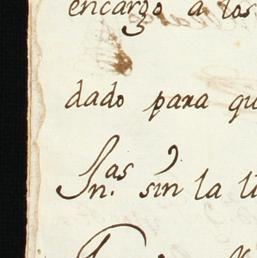 encargo a los
dado para qu
Jn.as sin la li